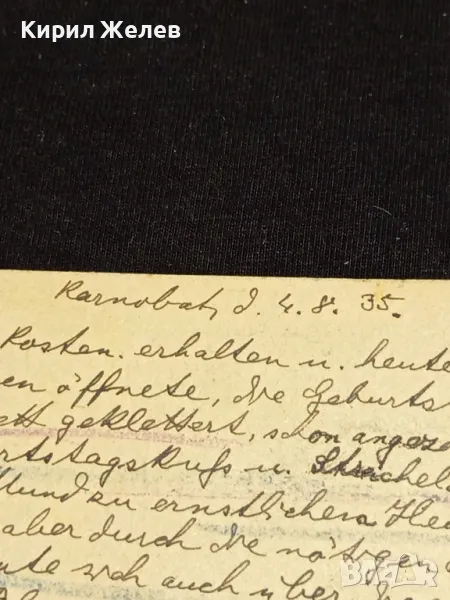 Кирил Желев
Karnobat, d. 4. 8. 35.
Kosten. erhalten u. heute
en öffnete, die Geburts
ett geklettert, schon angeze
rtstagskuss u. Strichel
Mund zu ernstlichen
aber durch die nötigen
te sich auch über
bazar